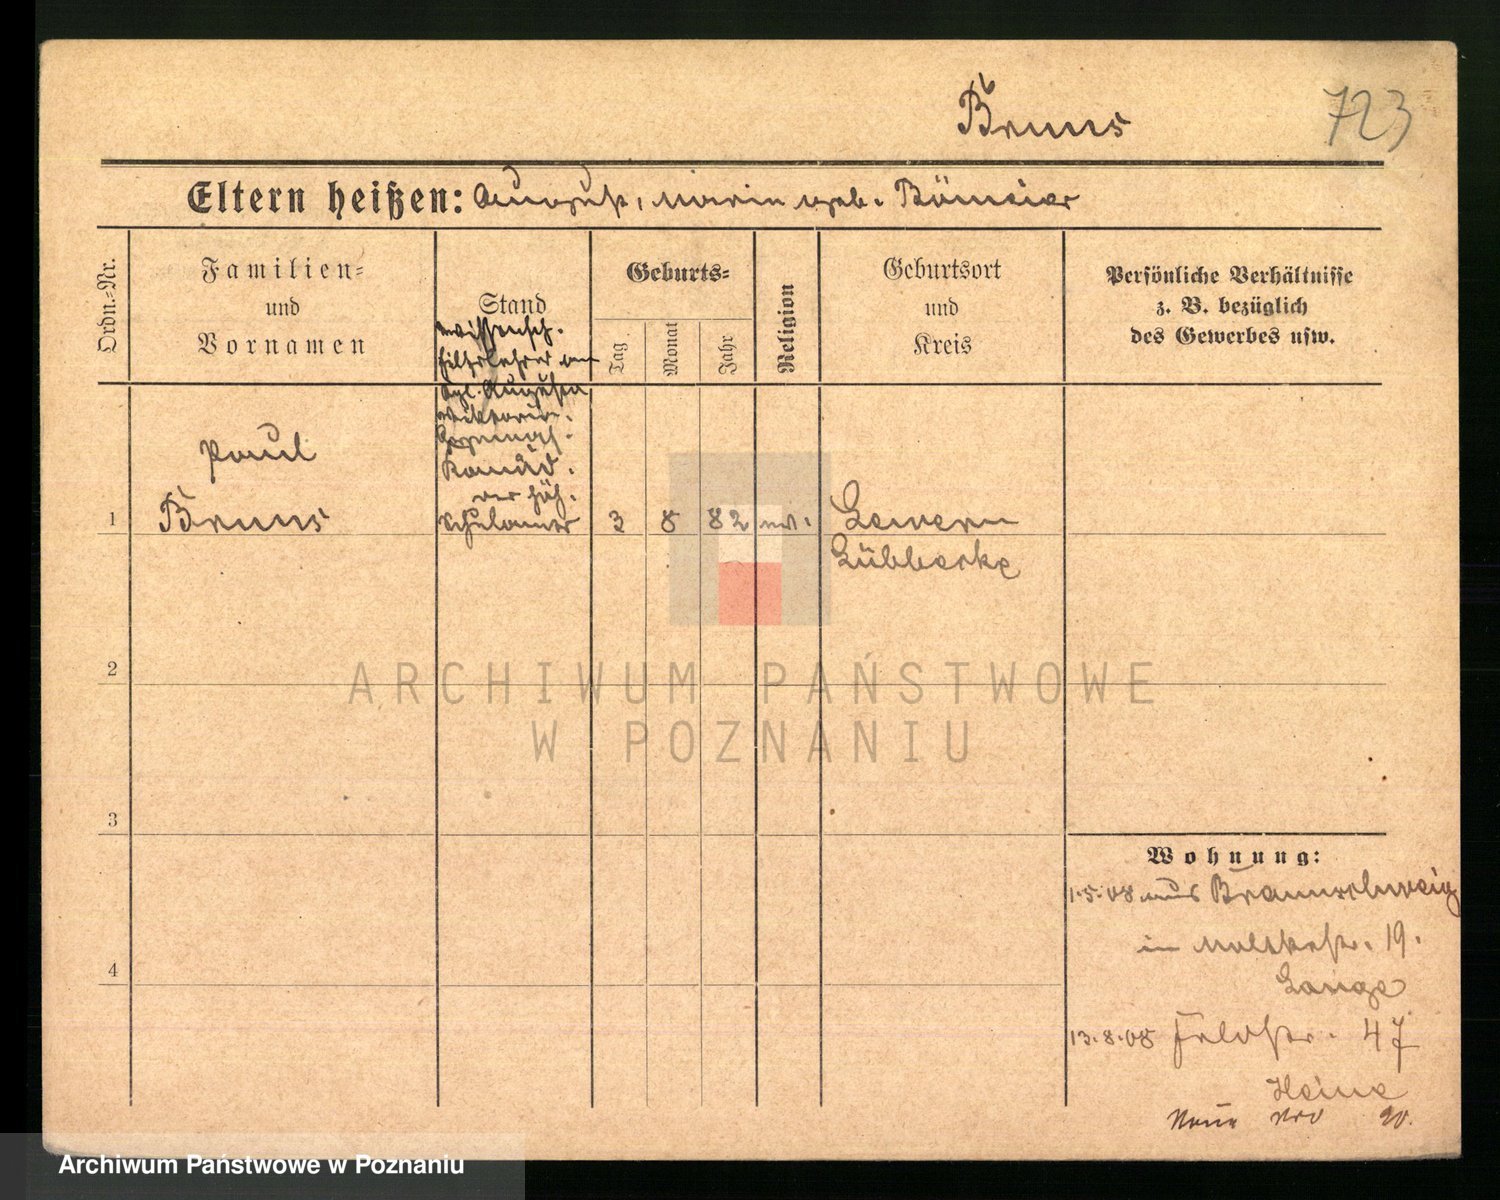 Bruns
723
Eltern heißen: August, Marie geb. Bömeier
Ordn.-Nr.
Familien-
und
Vornamen
Stand
Geburts-
Tag
Monat
Jahr
Religion
Geburtsort
und
Kreis
Persönliche Verhältnisse
z. B. bezüglich
des Gewerbes usw.
wissensch.
Hilfslehrer an
Kgl. Augusta
Viktoria-
Gymnas.
Kandid.
des höh.
Schulamts
Paul
1 Bruns 3 8 82 ev. Levern
Lübbecke
2
ARCHIWUM PAŃSTWOWE
W POZNANIU
3
Wohnung:
1.5.08 aus Braunschweig
in Moltkestr. 19.
Lange
4
13.8.08 Feldstr. 47
Heine
Neue Nro 20.
Archiwum Państwowe w Poznaniu